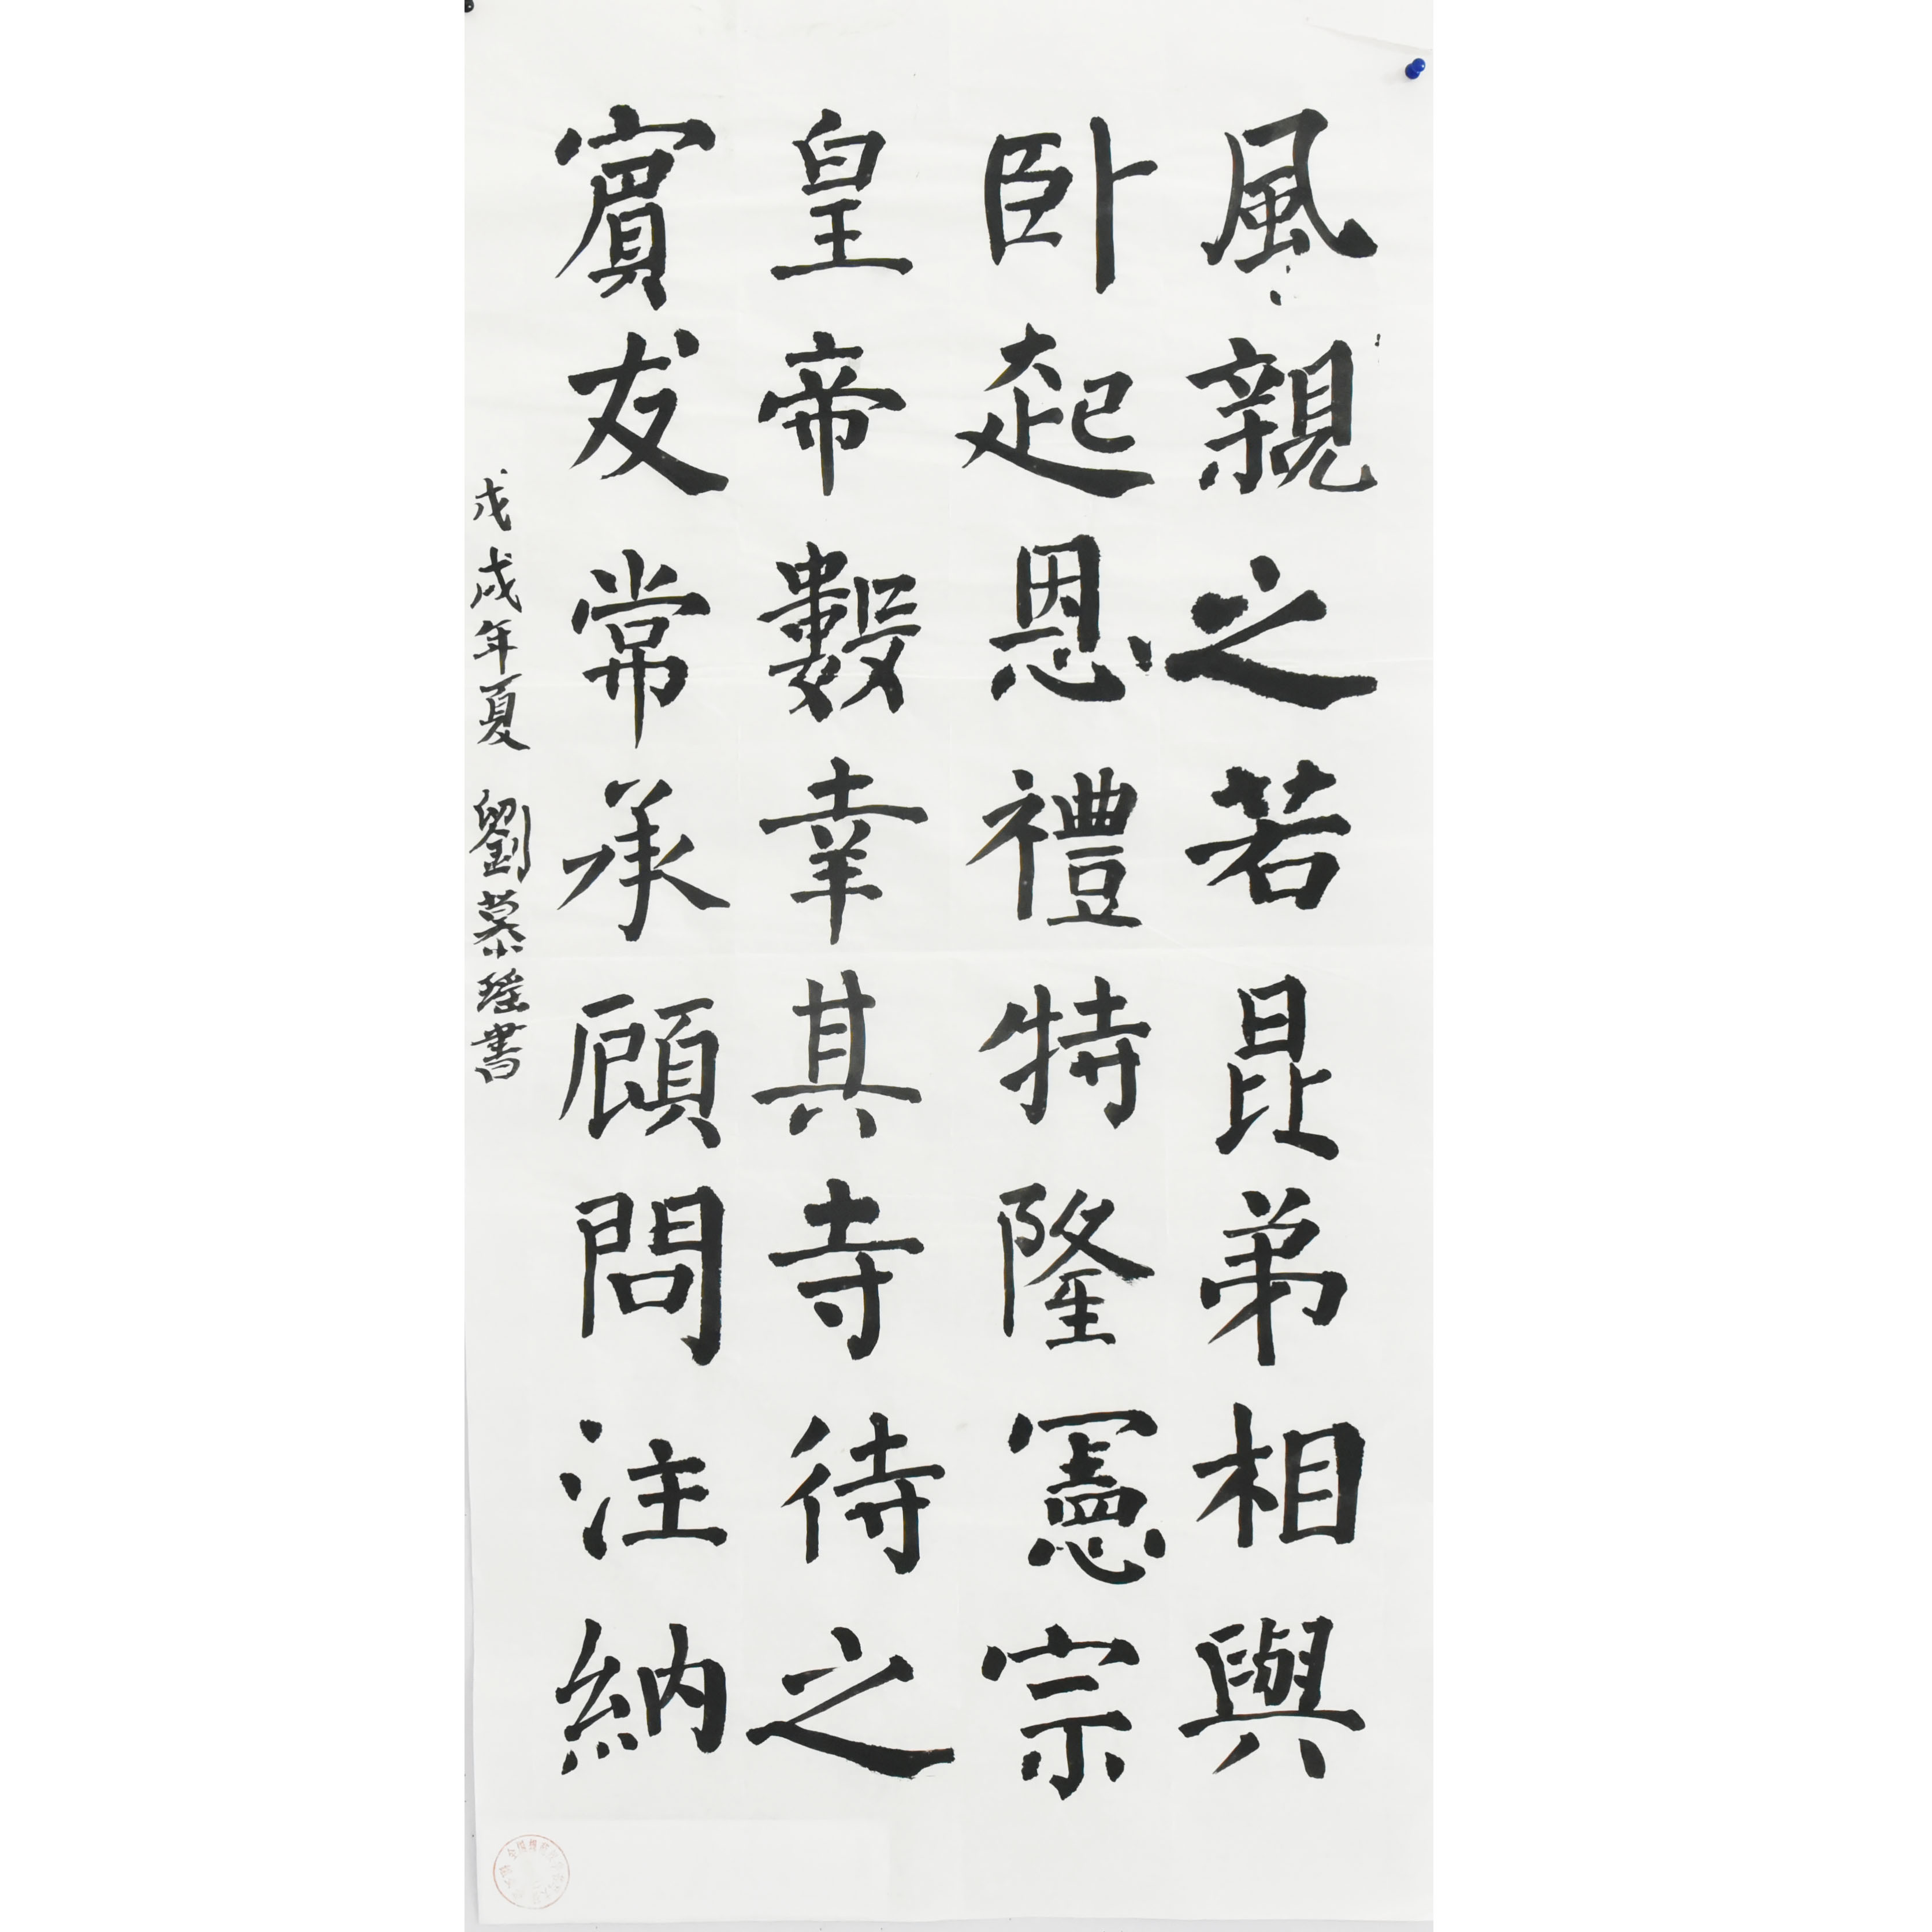 風親之若昆弟相與
卧起恩禮特隆憲宗
皇帝數幸其寺待之
賓友常承顧問注納
戊戌年夏 劉慕瑤書